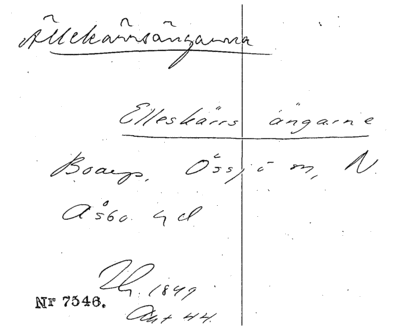 Ällekärrsängarna
Elleskärrs ängarne
Boarp, Össjö m, N.
Åsbo hd
1849
Akt 44.
Nr 7546.